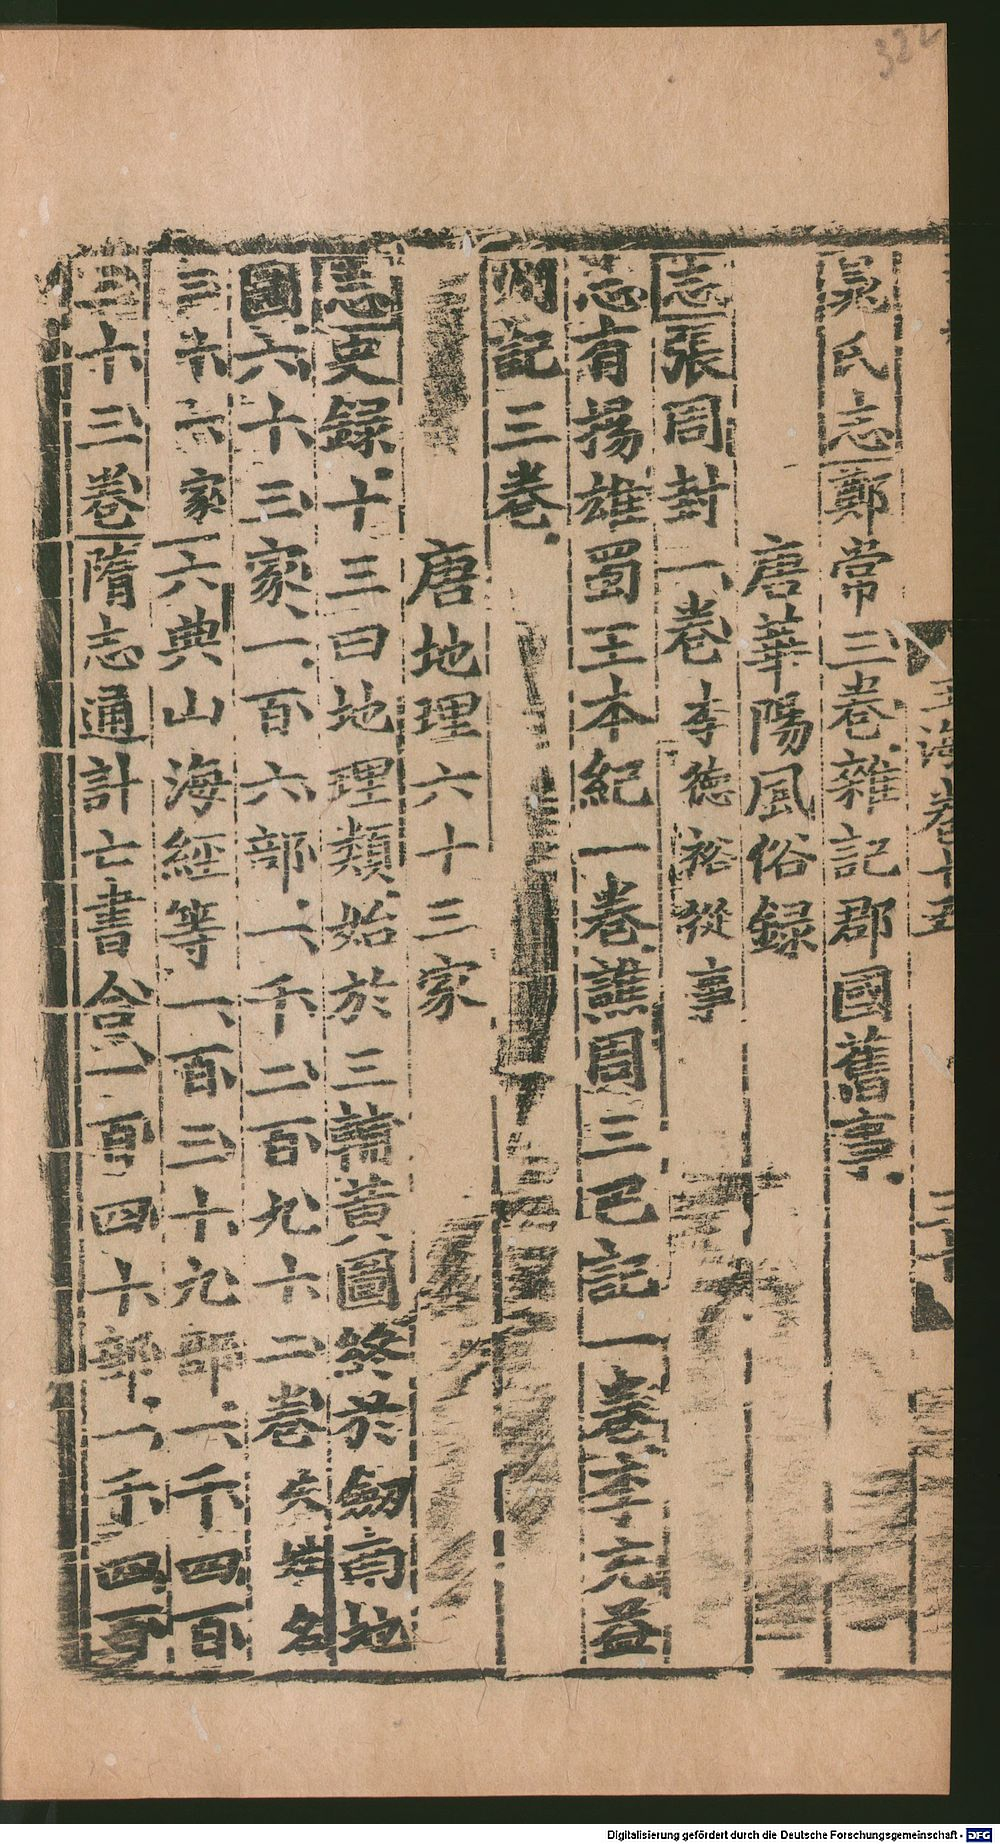 322
玉海卷十五
晁氏志鄭常三卷雜記郡國舊事
唐華陽風俗録
志張周封一卷李德裕從事
志有揚雄蜀王本紀一卷譙周三巴記一卷李充益
州記三卷
唐地理六十三家
志史録十三曰地理類始於三輔黄圖終於劒南地
圖六十三家一百六部一千二百九十二卷失姓名
三十六家六典山海經等一百三十九部一千四百
三十三卷隋志通計亡書合一百四十部一千四百
Digitalisierung gefördert durch die Deutsche Forschungsgemeinschaft - DFG